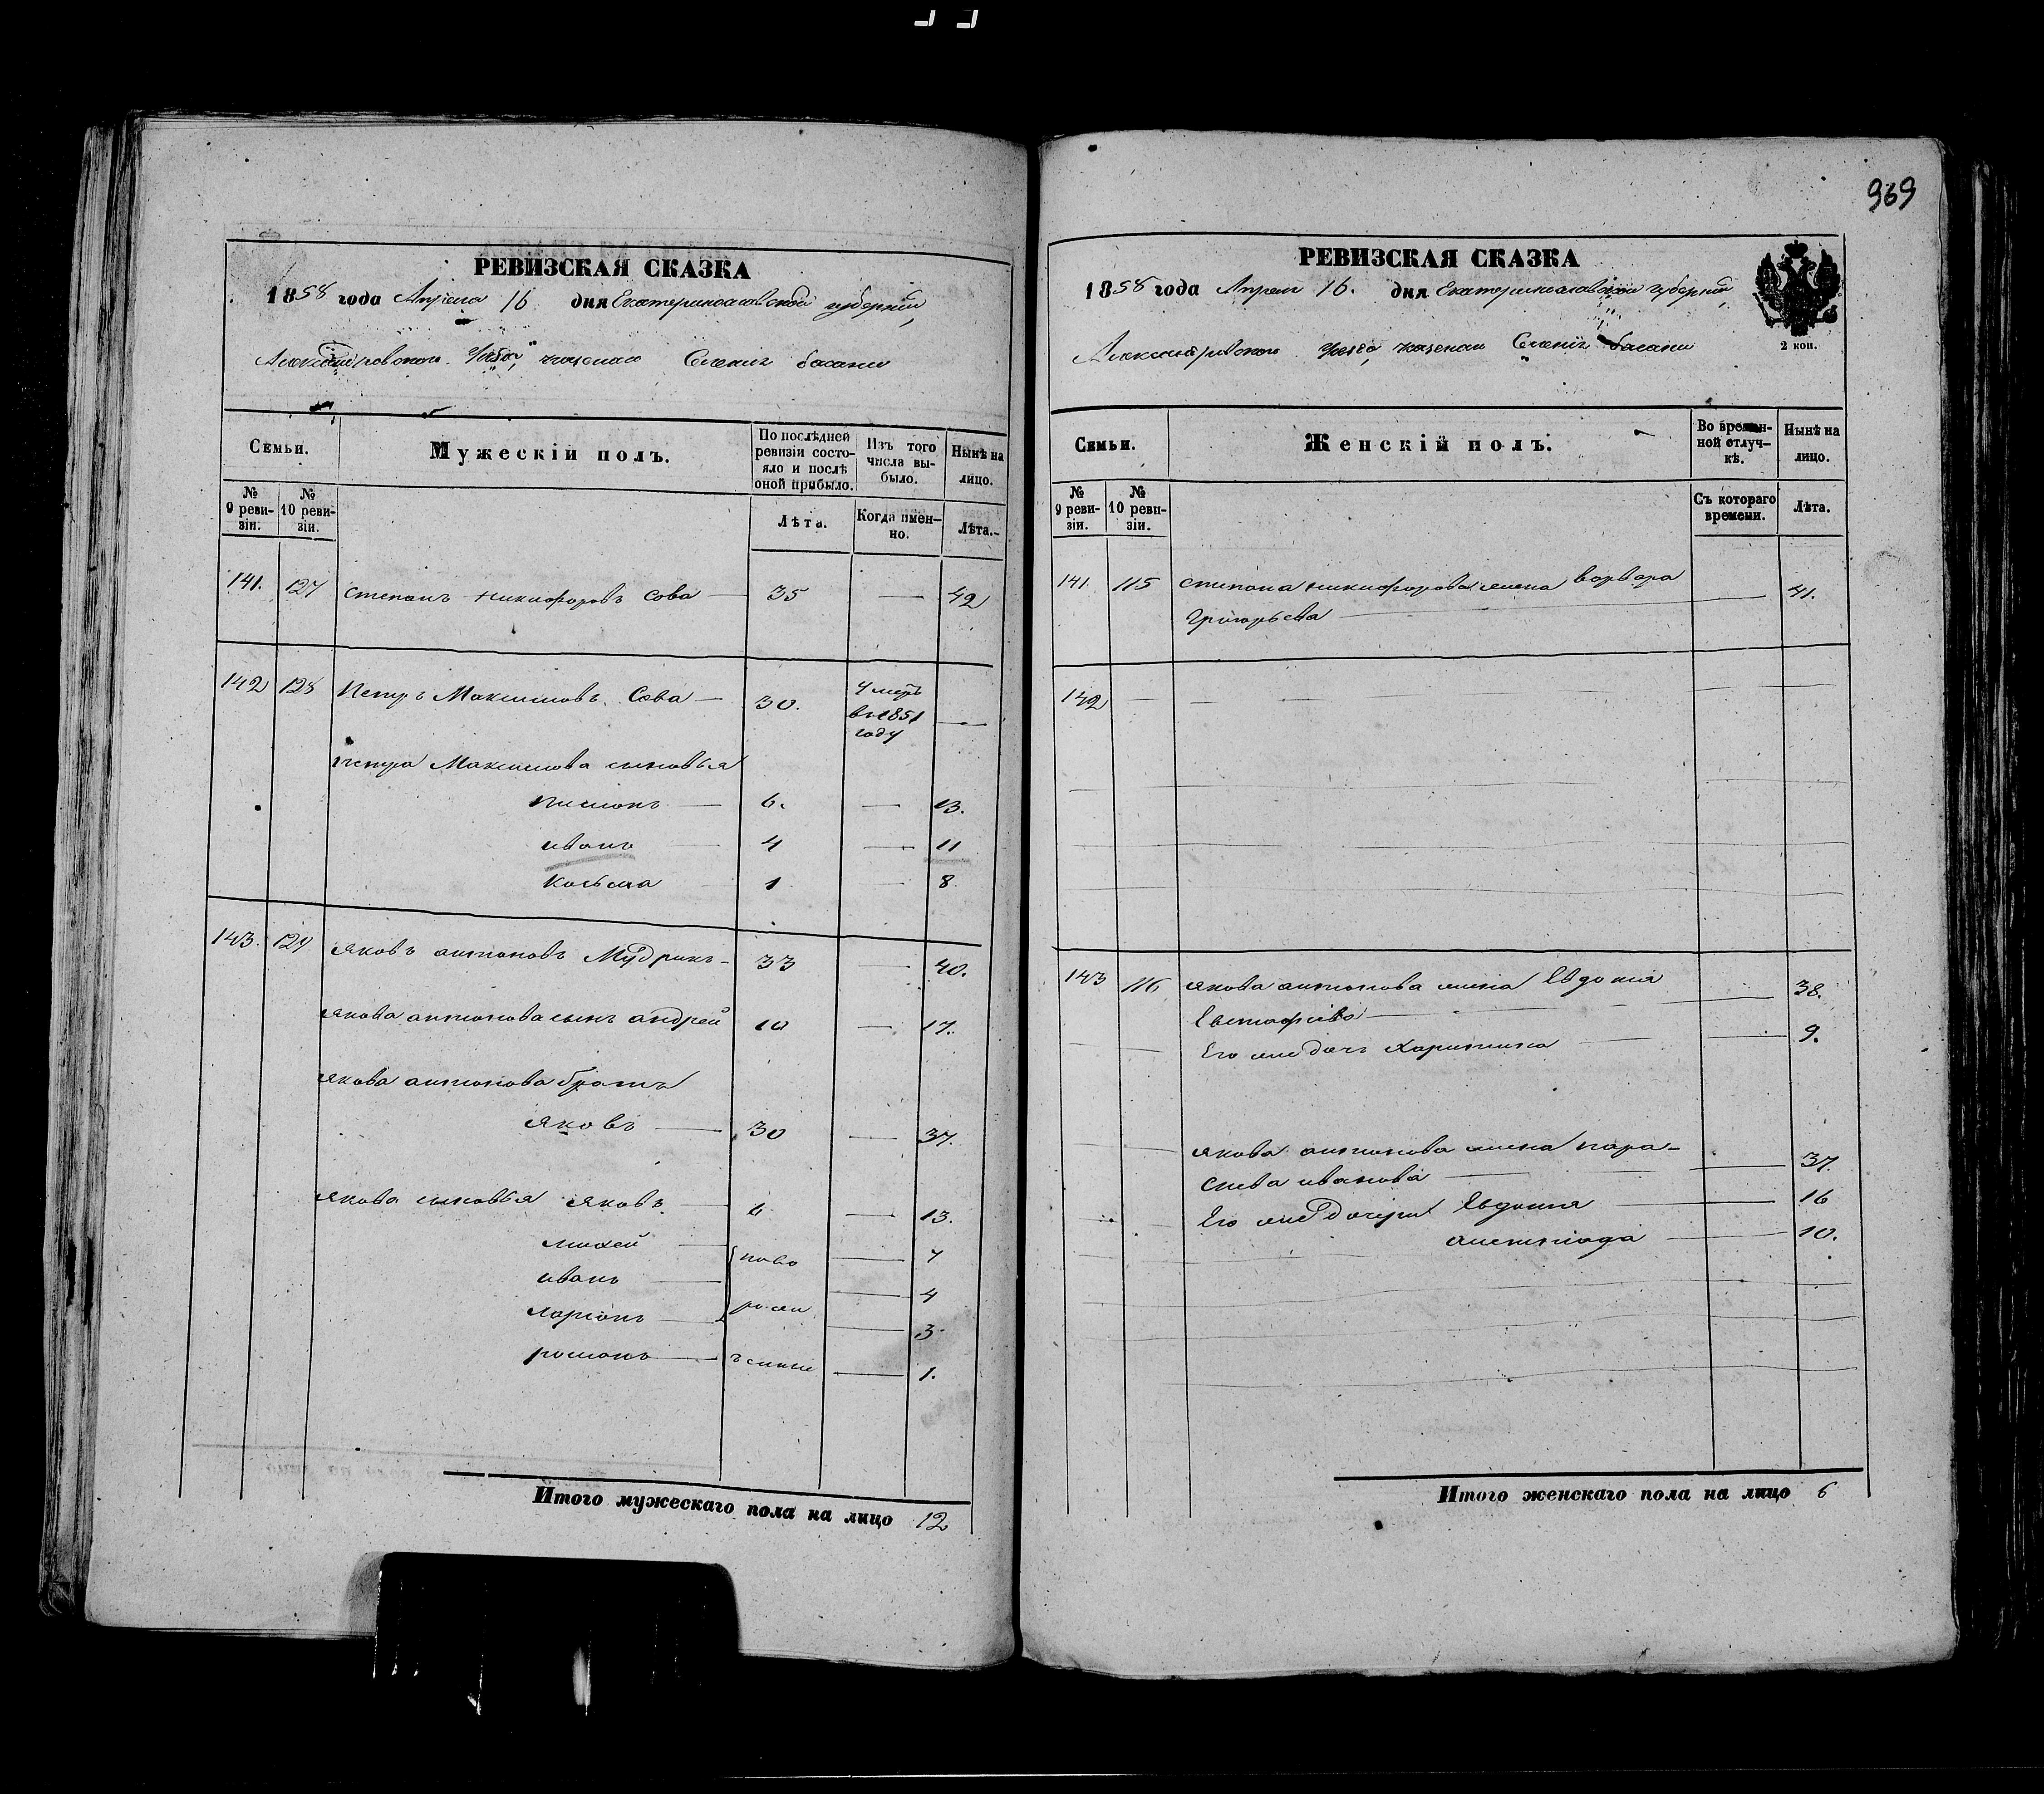 969
РЕВИЗСКАЯ СКАЗКА
1858 года Апреля 16 дня Екатеринославской губернии,
Александровского Уезда, казеннаго Селенія басани
Семьи.
Мужескій полъ.
По послѣдней ревизіи состояло и послѣ оной прибыло.
Изъ того числа выбыло.
Нынѣ на лицо.
№ 9 ревизіи.
№ 10 ревизіи.
Лѣта.
Когда именно.
Лѣта.
141. 127 степанъ никифоровъ Сова — 35 — 42
142 128 Петръ Максимовъ Сова — 30. Умеръ в 1851 году —
петра Максимова сыновья
6. — 13.
иванъ — 4 — 11
козьма 1 — 8
143. 129 яковъ антоновъ Мудрикъ — 33 — 40.
якова антонова сынъ андрей 10 — 17.
якова антонова братъ
яковъ — 30 — 37.
якова сыновья яковъ — 6 — 13.
михей — ново — 7
иванъ — — 4
ларіонъ — рожд — 3
романъ — — 1.
Итого мужескаго пола на лицо 12
РЕВИЗСКАЯ СКАЗКА
1858 года Апреля 16. дня Екатеринославской губерніи,
Александровского Уезда, казеннаго Селенія басани
2 коп.
Семьи.
Женскій полъ.
Во временной отлучкѣ.
Нынѣ на лицо.
№ 9 ревизіи.
№ 10 ревизіи.
Съ котораго времени.
Лѣта.
141. 115 степана никифорова жена варвара
григорьева — — 41.
142 — —
143 116 якова антонова жена Евдокия
Евстафиева — — 38.
Его же дочь Харитина — — 9.
якова антонова жена пара-
скева иванова — — 37.
Его же дочери Евдокия — 16
— 10.
Итого женскаго пола на лицо 6